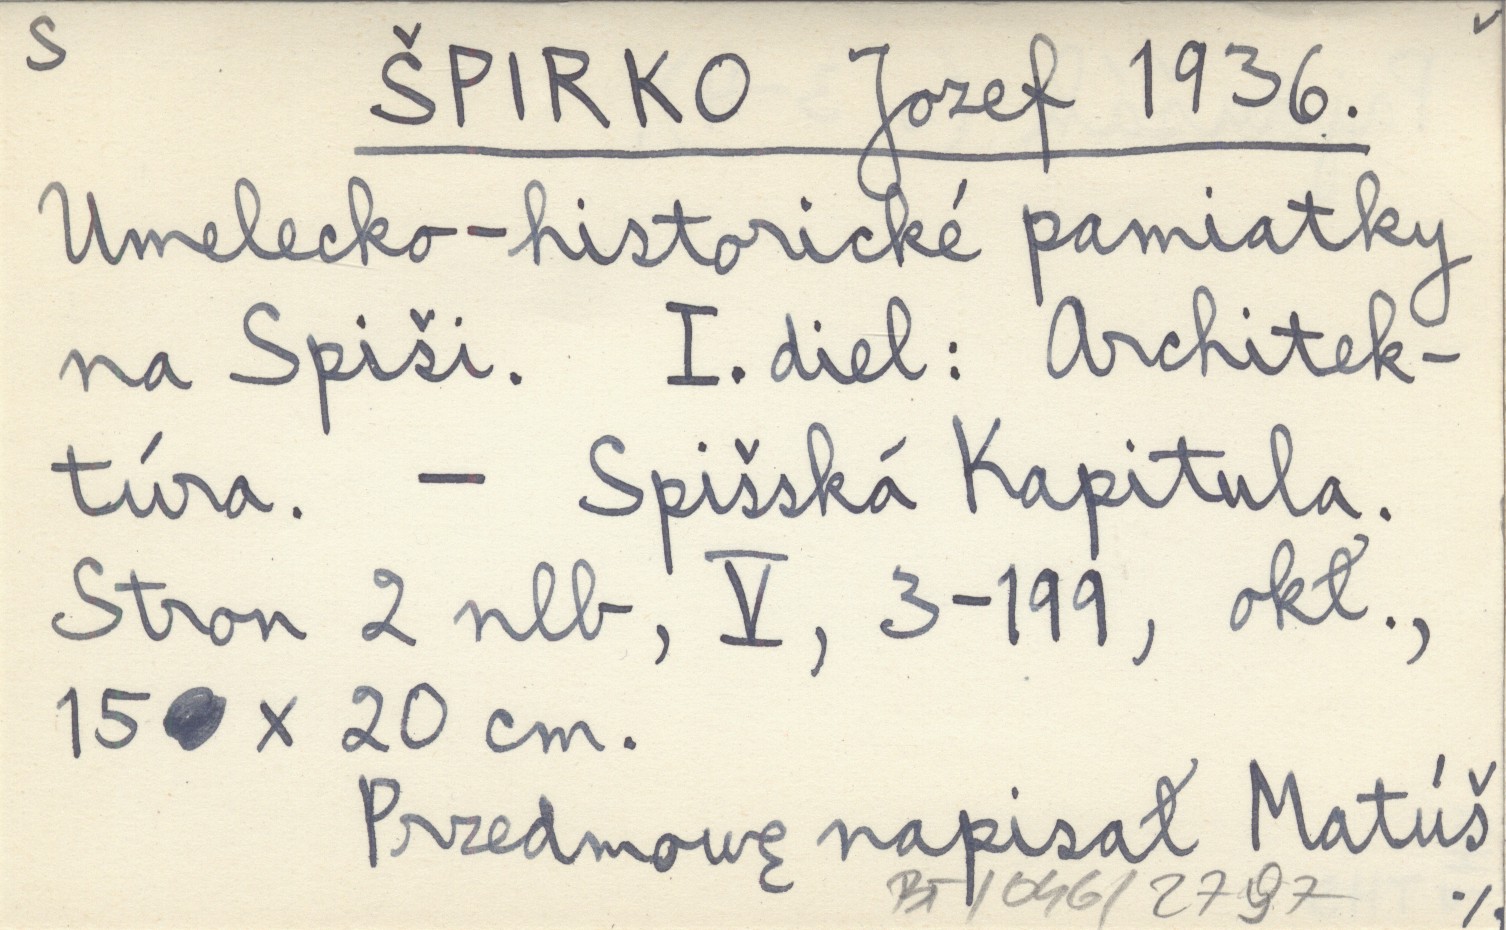 S
ŠPIRKO Jozef 1936.
Umelecko-historické pamiatky
na Spiši. I. diel: Architek-
túra. – Spišská Kapitula.
Stron 2 nlb, V, 3-199, okł.,
15 x 20 cm.
Przedmowę napisał Matúš
046/2797
./.